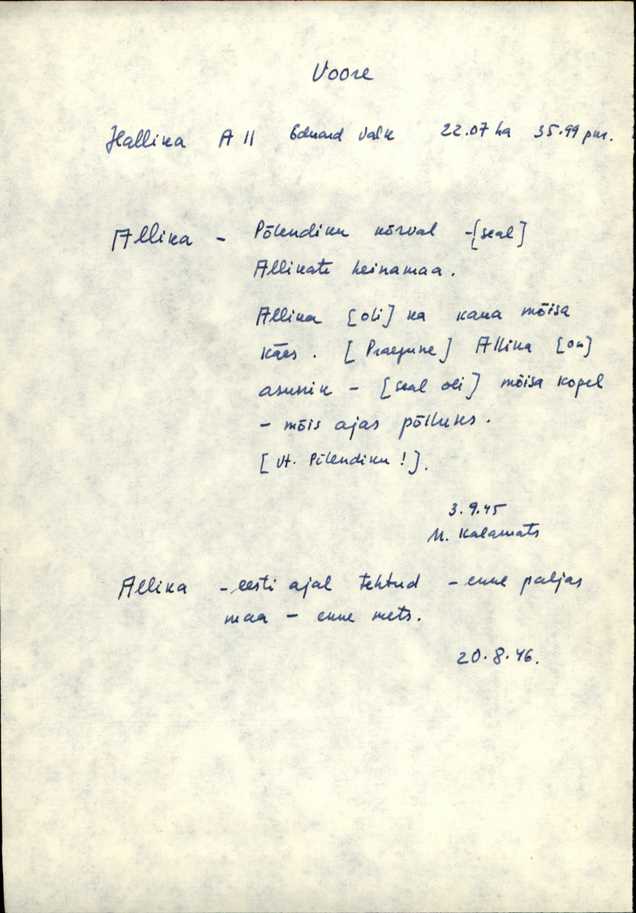 Voore
Hallika A 11 Eduard Valk 22.07 ha 35.99 pnr.
Allika - Põlendiku kõrval - [seal]
Allikate heinamaa.
Allika [oli] ka kaua mõisa
käes. [Praegune] Allika [on]
asunik - [seal oli] mõisa kopel
- mõis ajas põlluks.
[vt. Põlendiku!].
3.9.45
M. Kalamats
Allika - eesti ajal tehtud - enne paljas
maa - enne mets.
20.8.46.